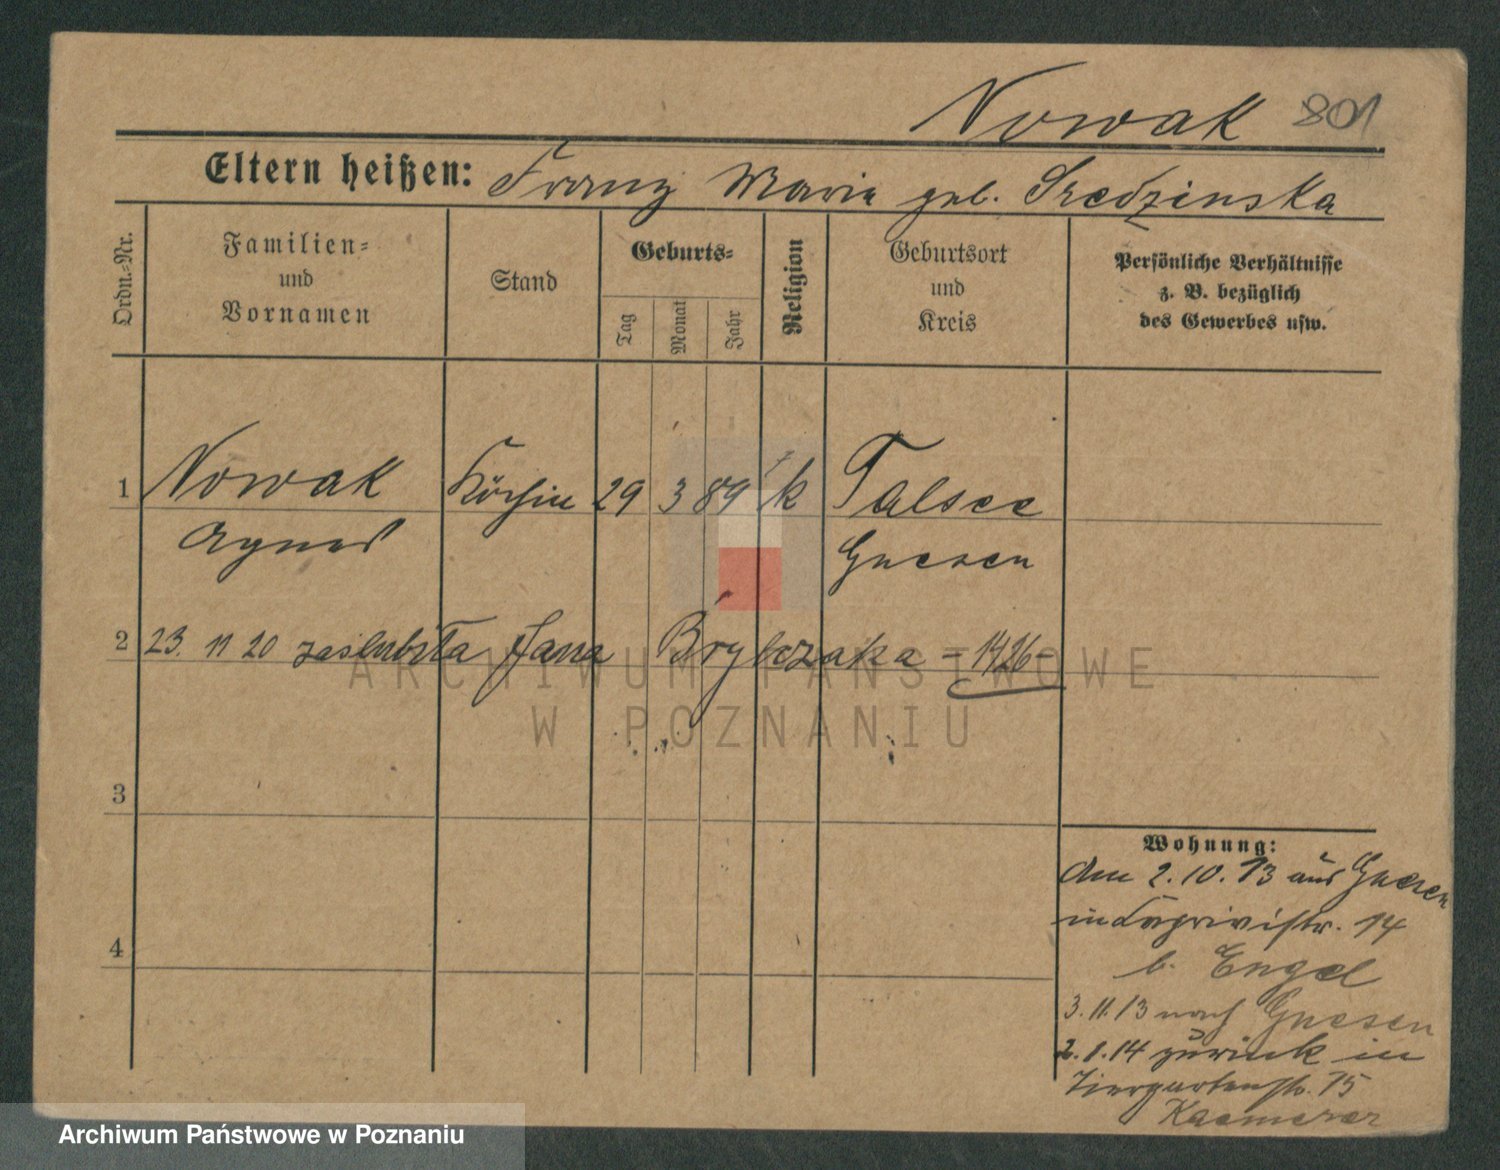 Nowak 801
Eltern heißen: Franz Maria geb. Sredzinska
Ordn.=Nr.
Familien=
und
Vornamen
Stand
Geburts=
Tag
Monat
Jahr
Religion
Geburtsort
und
Kreis
Persönliche Verhältnisse
z. B. bezüglich
des Gewerbes usw.
1 Nowak Köchin 29 3 89 k Talsee
Agnes Gnesen
2 23. 11 20 zaślubiła Jana Brybczaka - 1426-
ARCHIWUM PAŃSTWOWE
W POZNANIU
3
Wohnung:
Am 2.10.13 aus Gnesen
in Caprivistr. 14
b. Engel
4
3.11.13 nach Gnesen
2.1.14 zurück in
Tiergartenstr. 15
Kaemerer
Archiwum Państwowe w Poznaniu